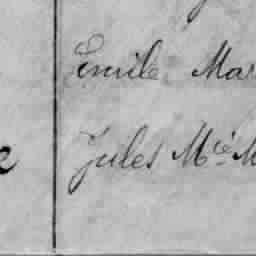 Emile Mar
Jules Mcé M